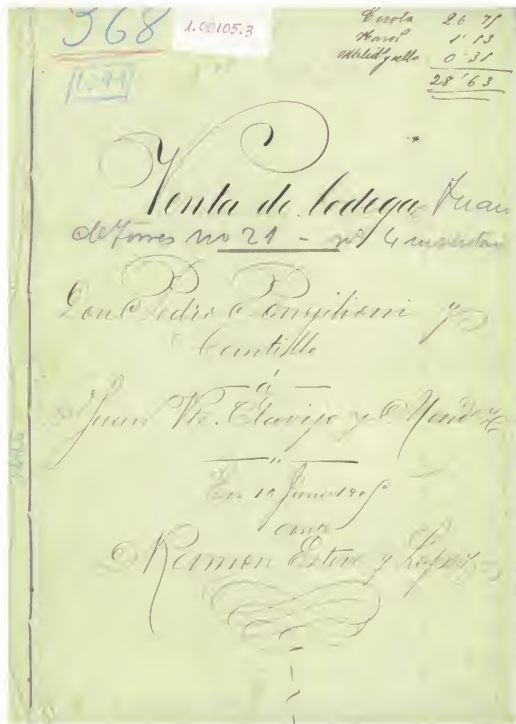 368
1.00105.3
26 75
1'53
0'35
28'63
Venta de bodega Juan
de Torres no 21 - nº 4
Don Pedro Pongilioni y
Cantillo
á
Juan Vte. Clavijo y
En 1º Junio 190
ante
D. Ramon Esteve y Lopez